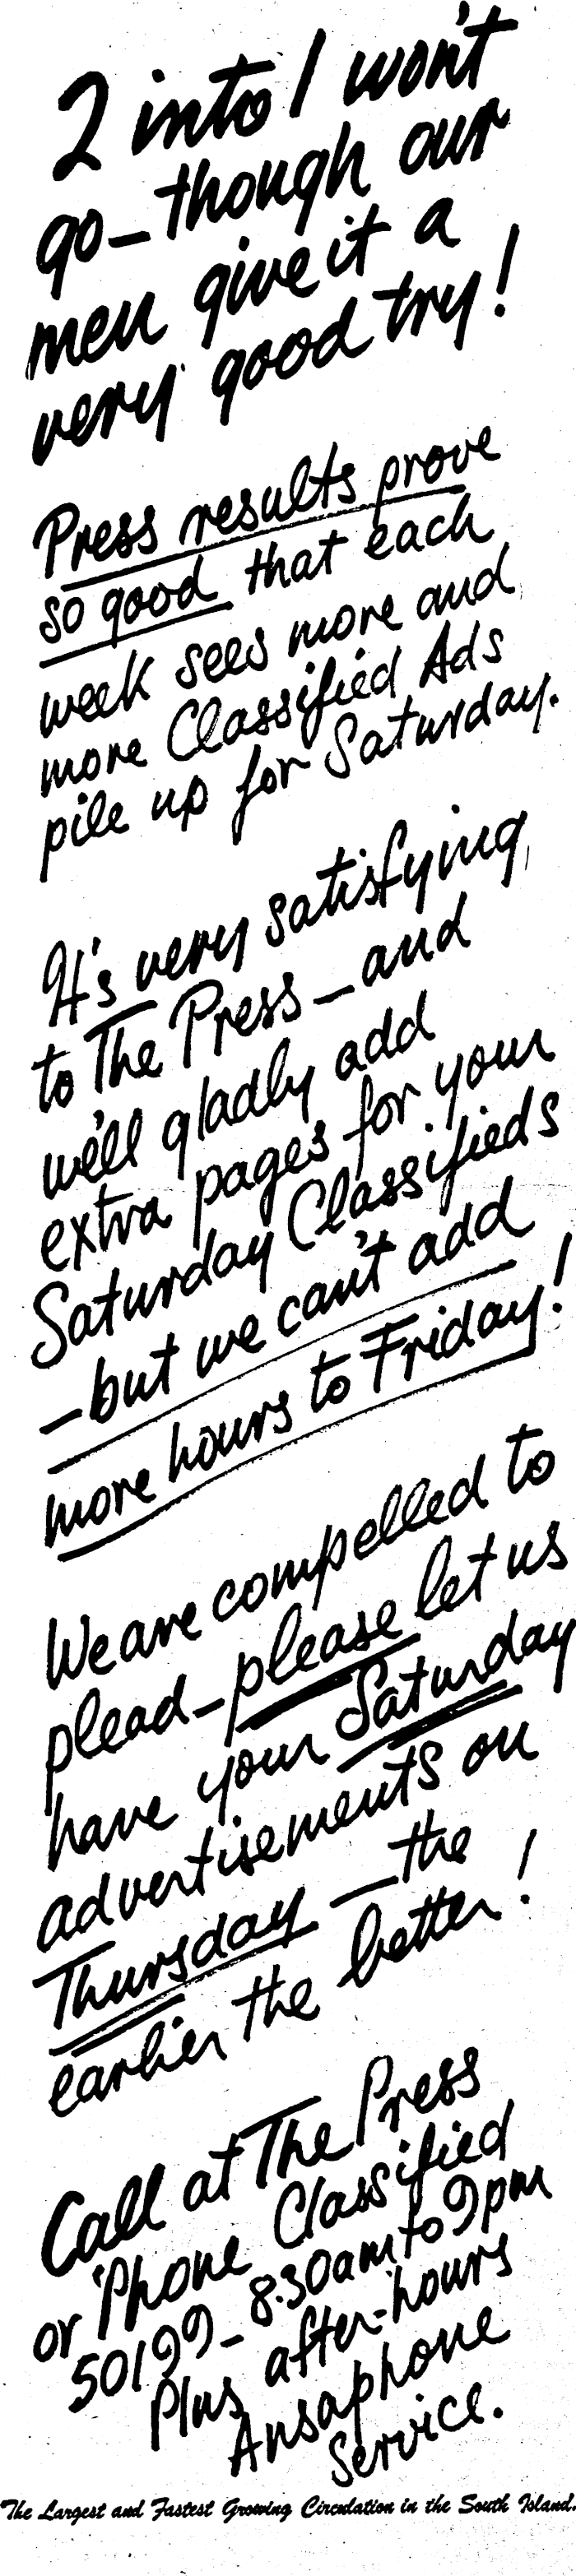 2 into 1 won't
go—though our
men give it a
very good try!
Press results prove
so good that each
week sees more and
more Classified Ads
pile up for Saturday.
It's very satisfying,
to The Press—and
we'll gladly add
extra pages for your
Saturday Classifieds
—but we can't add
more hours to Friday!
We are compelled to
plead—please let us
have your Saturday
advertisements on
Thursday—the
earlier the better!
Call at The Press
or 'Phone Classified
50199—8.30am to 9pm
Plus after-hours
Ansaphone
Service.
The Largest and Fastest Growing Circulation in the South Island.